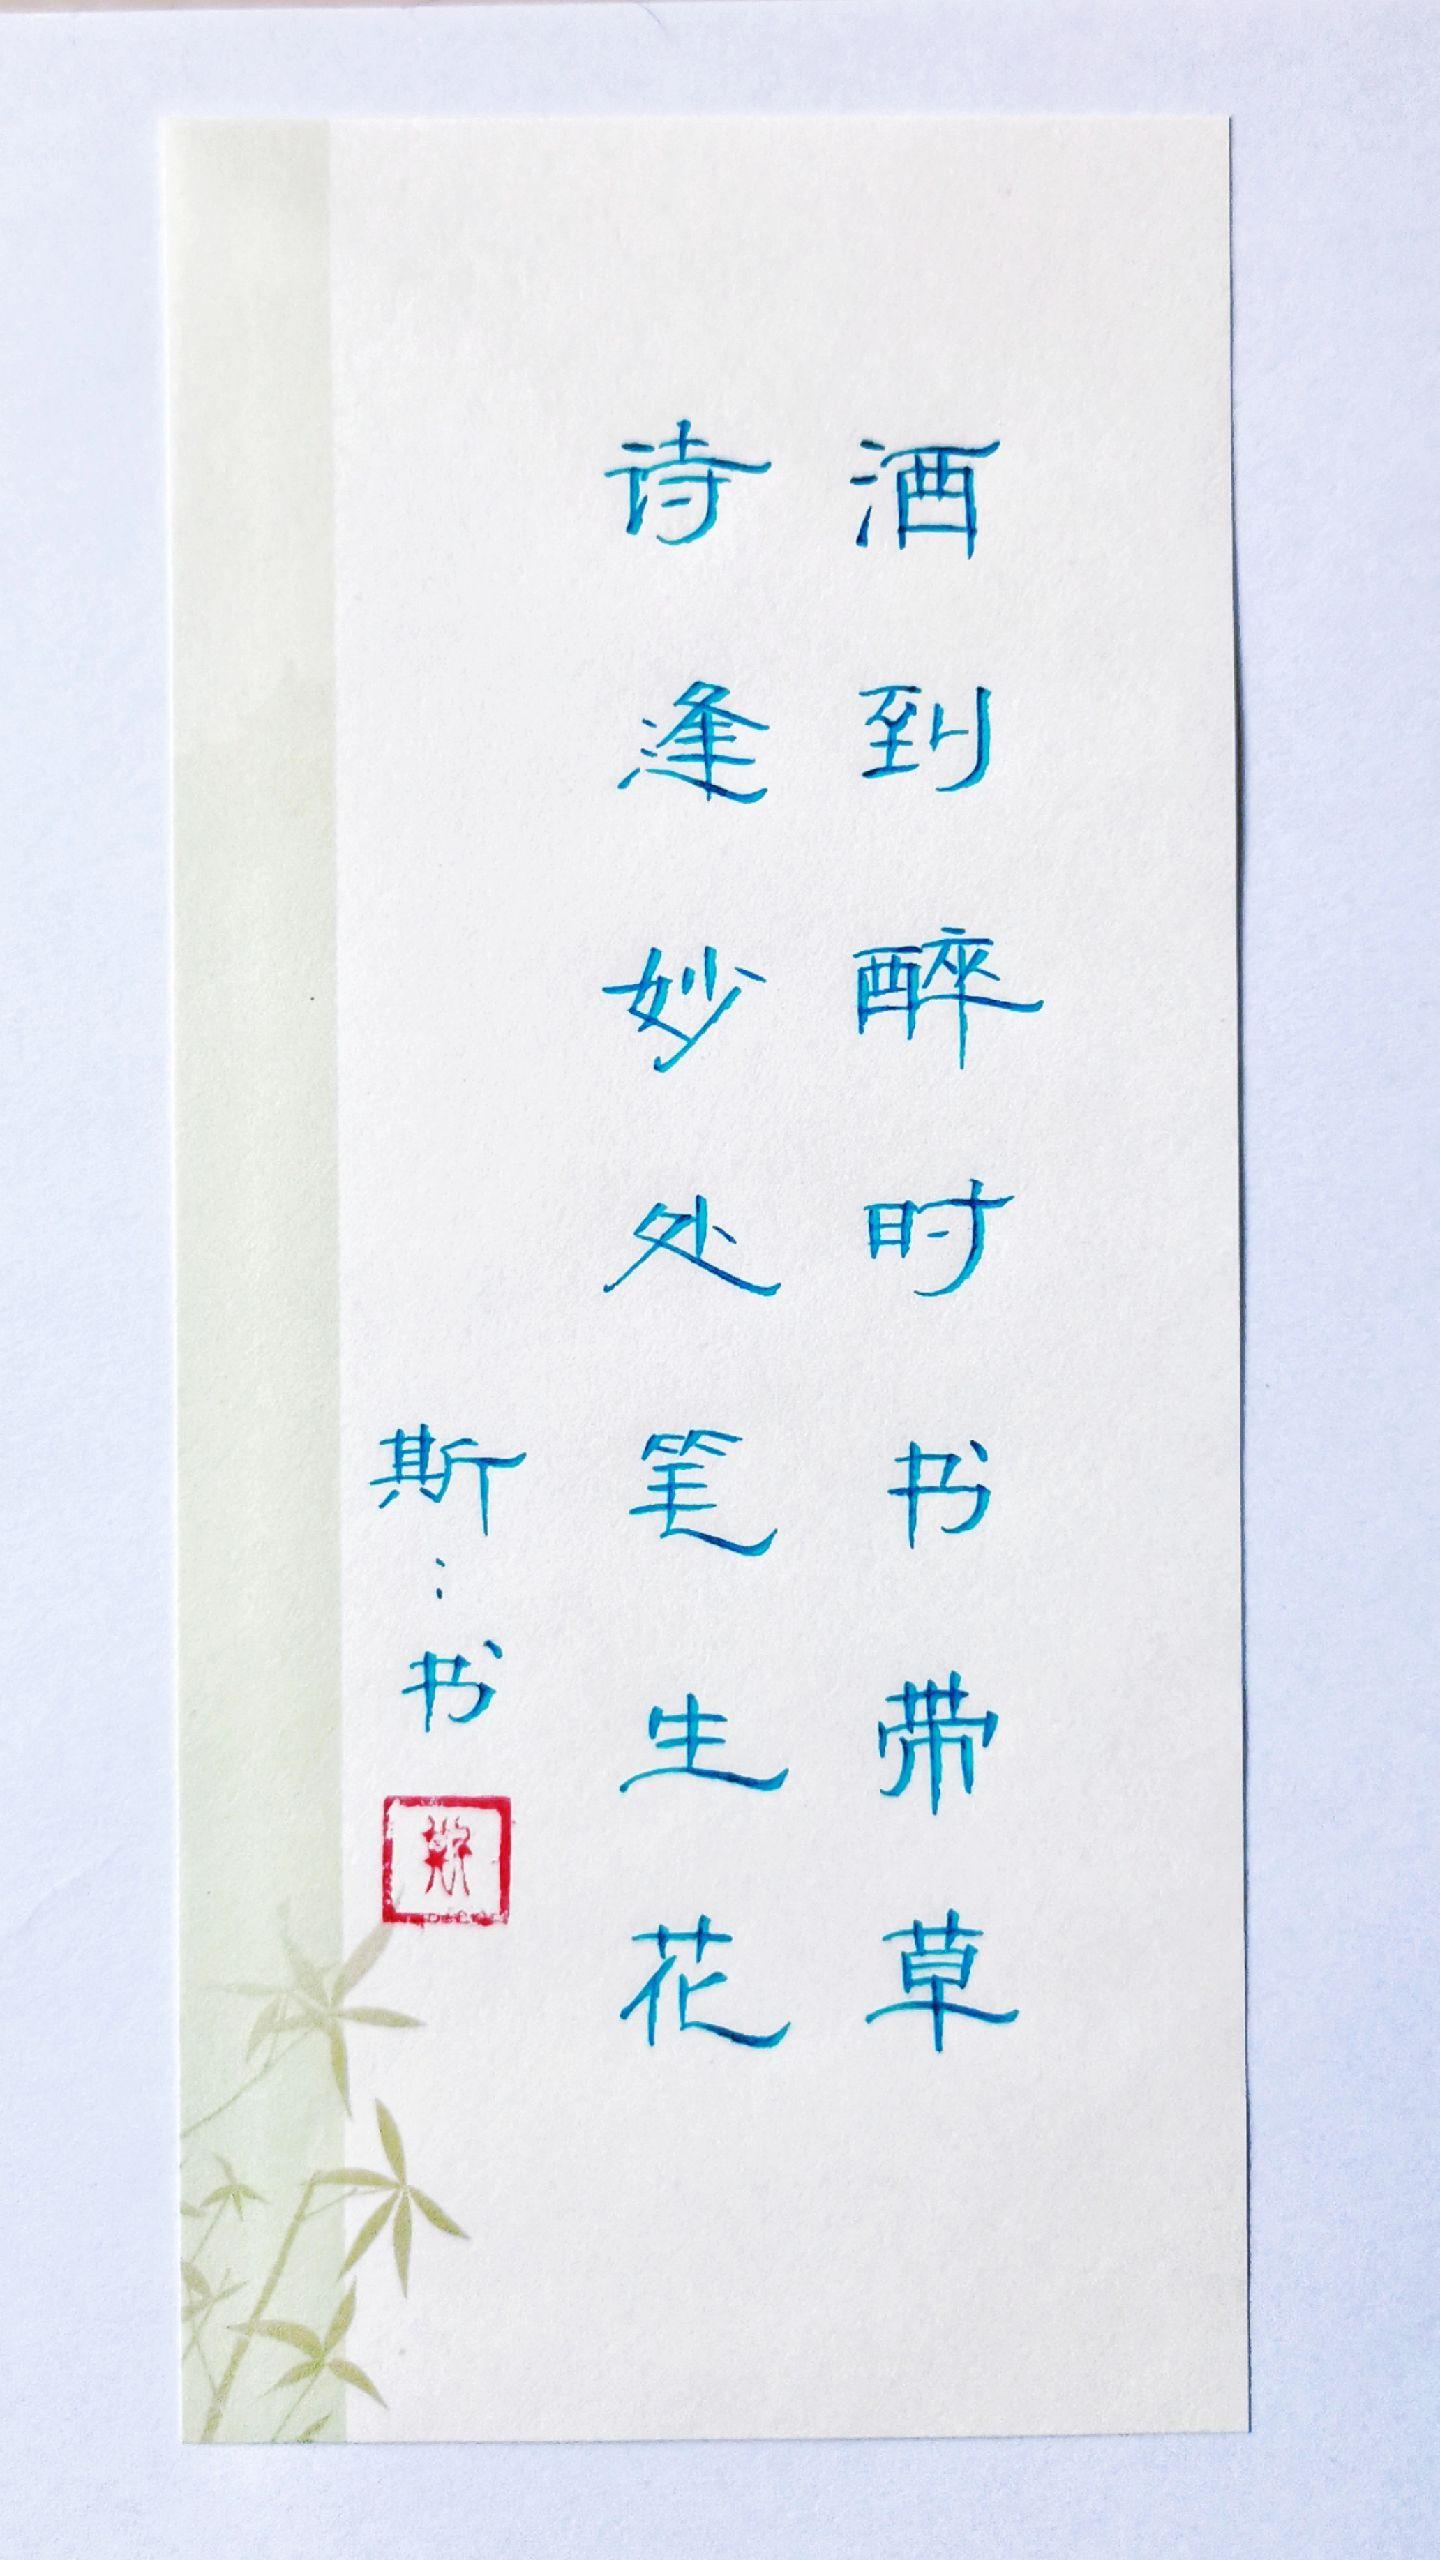 酒到醉时书带草
诗逢妙处笔生花
斯:书
斯